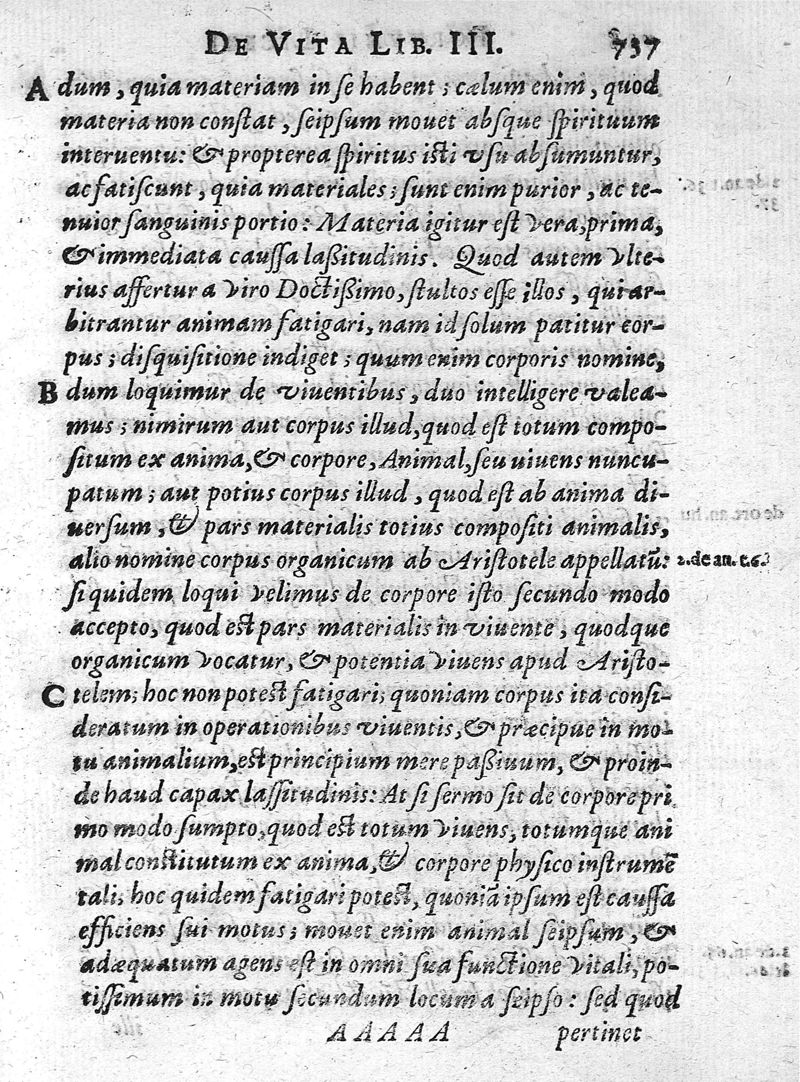 DE VITA LIB. III. 737
A dum, quia materiam in se habent; cælum enim, quod
materia non constat, seipsum mouet absque spirituum
interuentu: & propterea spiritus isti vsu absumuntur,
ac fatiscunt, quia materiales; sunt enim purior, ac te-
nuior sanguinis portio: Materia igitur est vera, prima,
& immediata caussa laßitudinis. Quod autem vlte-
rius affertur a viro Doctißimo, stultos esse illos, qui ar-
bitrantur animam fatigari, nam id solum patitur cor-
pus; disquisitione indiget; quum enim corporis nomine,
B dum loquimur de viuentibus, duo intelligere valea-
mus; nimirum aut corpus illud, quod est totum compo-
situm ex anima, & corpore, Animal, seu uiuens nuncu-
patum; aut potius corpus illud, quod est ab anima di-
uersum, & pars materialis totius compositi animalis,
alio nomine corpus organicum ab Aristotele appellatū: 2. de an. t. 6.
si quidem loqui velimus de corpore isto secundo modo
accepto, quod est pars materialis in viuente, quodque
organicum vocatur, & potentia viuens apud Aristo-
C telem; hoc non potest fatigari; quoniam corpus ita consi-
deratum in operationibus viuentis, & præcipue in mo-
tu animalium, est principium mere paßiuum, & proin-
de haud capax lassitudinis: At si sermo sit de corpore pri
mo modo sumpto, quod est totum viuens, totumque ani
mal constitutum ex anima, & corpore physico instrumē
tali; hoc quidem fatigari potest, quoniā ipsum est caussa
efficiens sui motus; mouet enim animal seipsum, &
adæquatum agens est in omni sua functione vitali, po-
tissimum in motu secundum locum a seipso: sed quod
AAAAA pertinet